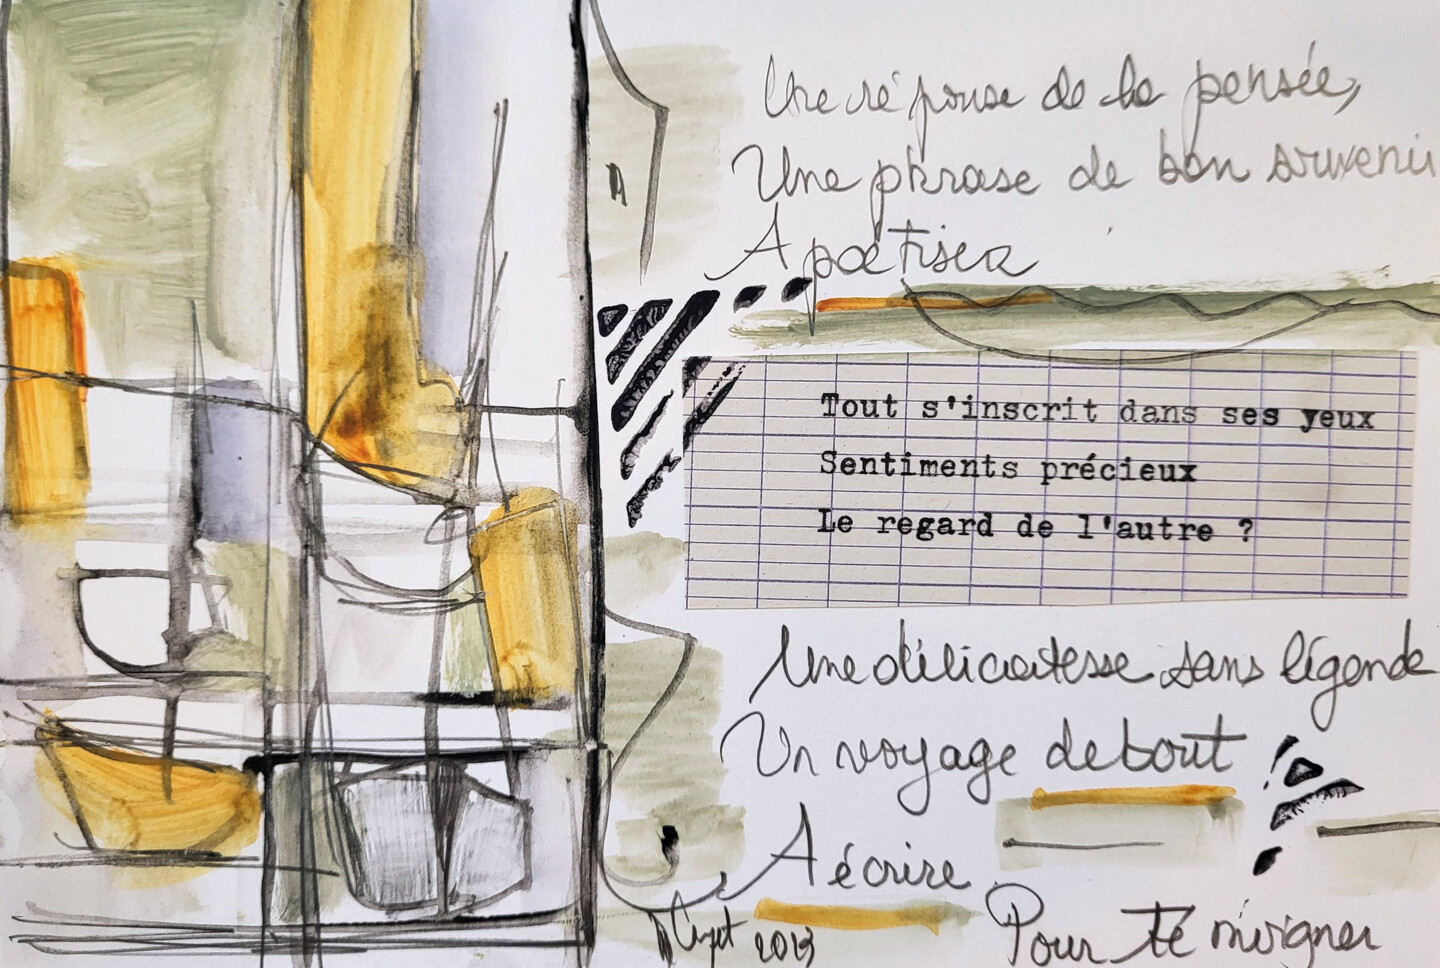 Une réponse de la pensée,
Une phrase de bon souvenir
A poétiser
Tout s'inscrit dans ses yeux
Sentiments précieux
Le regard de l'autre ?
Une délicatesse sans légende
Un voyage debout
A écrire
Pour témoigner